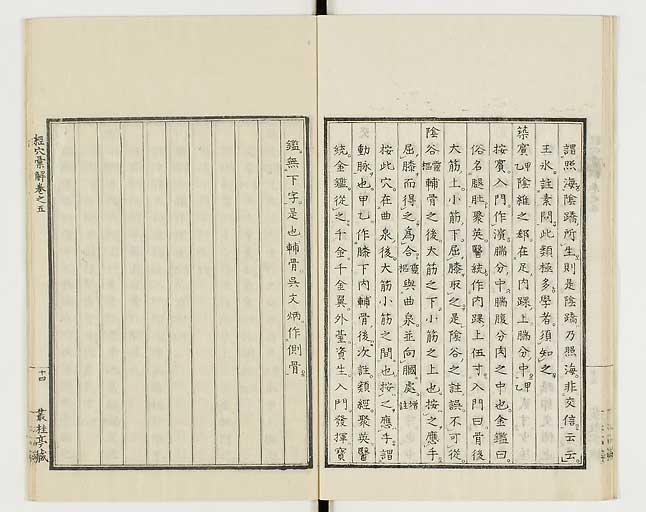 謂照海陰蹻所生則是陰蹻乃照海非交信云云
王氷註素問此類極多學者須知之
築賓甲乙陰維之郄在足内踝上腨分中甲乙
按賓入門作濱腨分中腨腹分肉之中也金鑑曰
俗名腿肚聚英醫統作内踝上伍寸入門曰骨後
大筋上小筋下屈膝取之是陰谷之註誤不可從
陰谷靈樞輔骨之後大筋之下小筋之上也按之應手
屈膝而得之爲合靈樞與曲泉並向膕處增註
按此穴在曲泉後大筋小筋之間也按之應手謂
動脉也甲乙作膝下内輔骨後次註類經聚英醫
統金鑑從之千金千金翼外臺資生入門發揮寶
鑑無下字是也輔骨吳文炳作側骨
經穴彙解卷之五
十四
叢桂亭藏